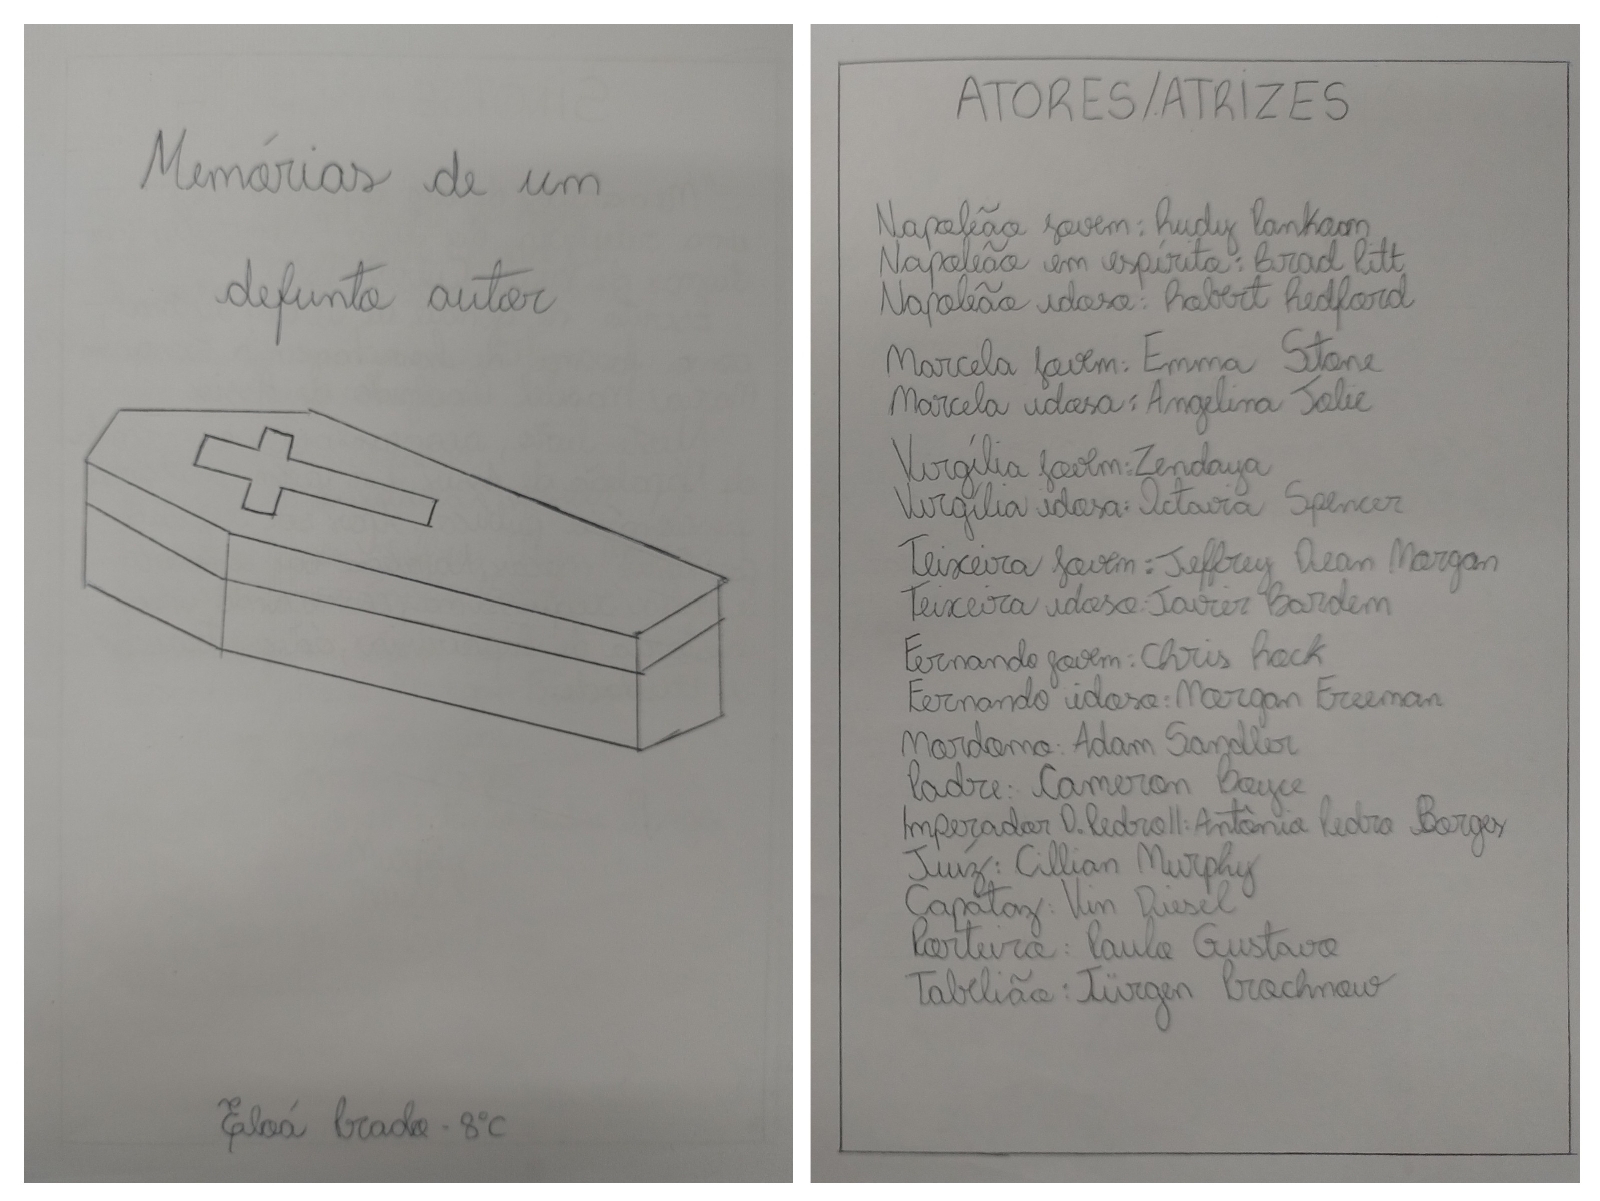 Memórias de um
defunto autor
Eloá Prado - 8°C
ATORES/ATRIZES
Napoleão jovem: Rudy Pankaon
Napoleão em espírito: Brad Pitt
Napoleão idoso: Robert Redford
Marcela jovem: Emma Stone
Marcela idosa: Angelina Jolie
Virgília jovem: Zendaya
Virgília idosa: Octavia Spencer
Teixeira jovem: Jeffrey Dean Morgan
Teixeira idoso: Javier Bardem
Fernando jovem: Chris Rock
Fernando idoso: Morgan Freeman
Mordomo: Adam Sandler
Padre: Cameron Boyce
Imperador D. Pedro II: Antônio Pedro Borges
Juíz: Cillian Murphy
Capataz: Vin Diesel
Porteiro: Paulo Gustavo
Tabelião: Jürgen Prochnow